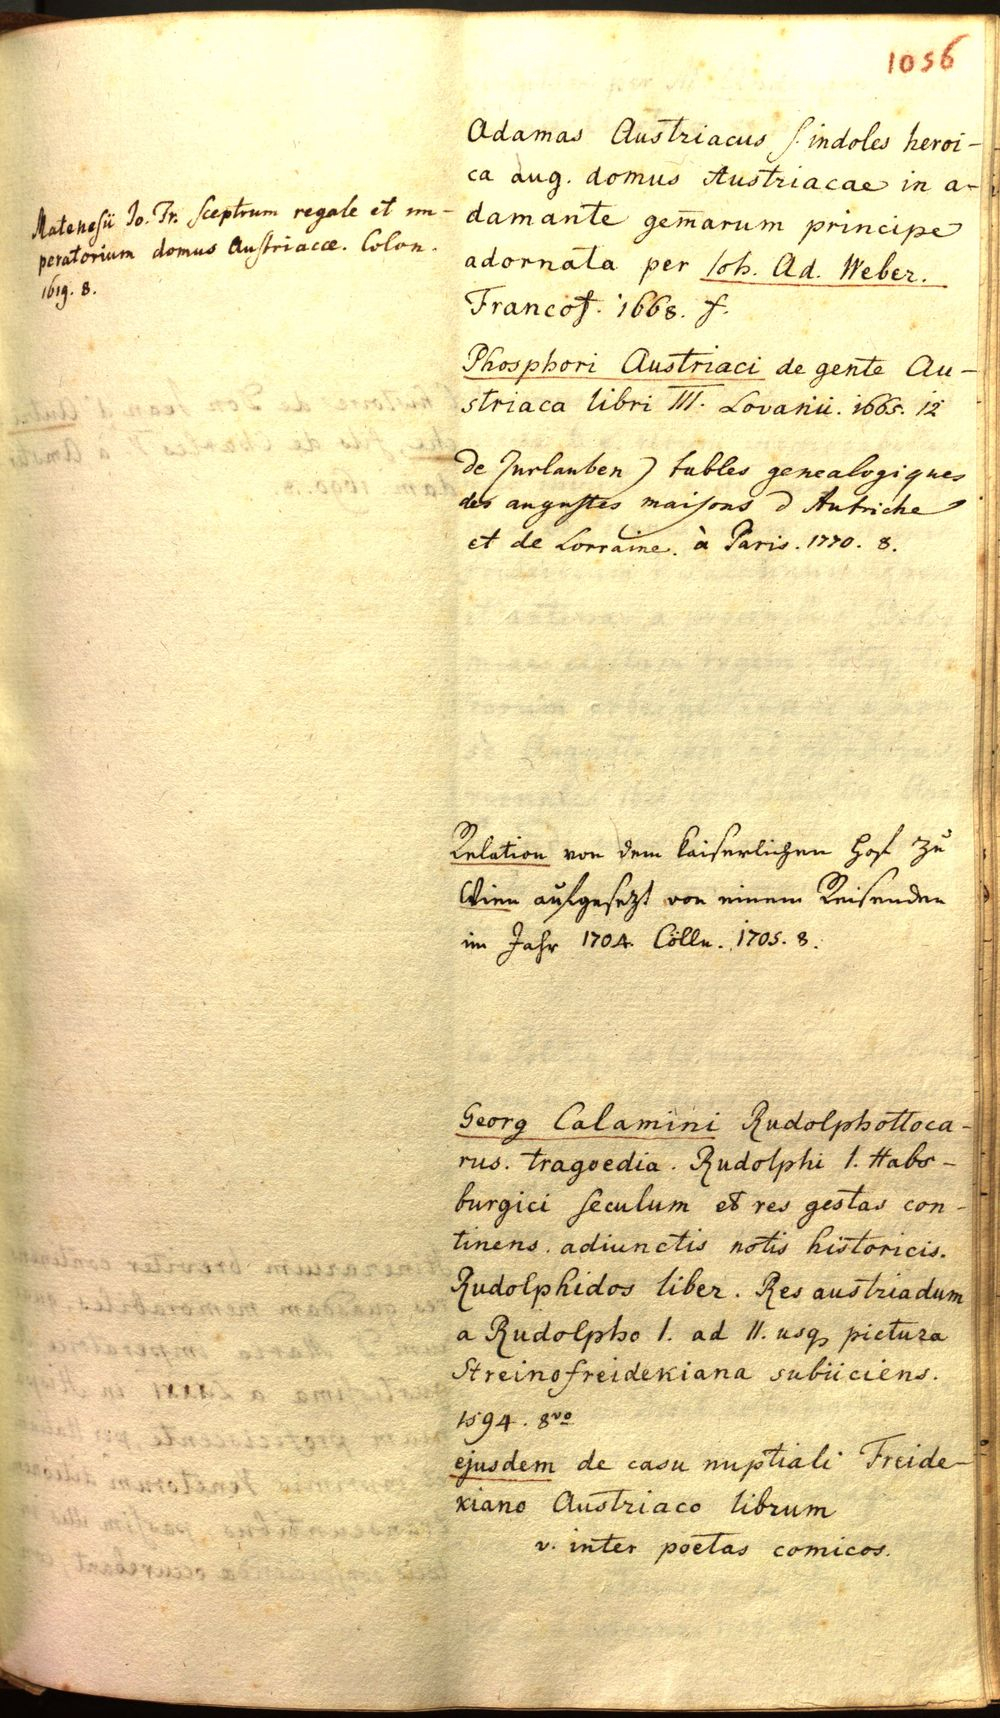 1056
Matenesii Jo. Fr. Sceptrum regale et im-
peratorium domus Austriacæ. Colon.
1619. 8.
Adamas Austriacus s. indoles heroi-
ca aug. domus Austriacae in a-
damante gem̄arum principe
adornata per Joh. Ad. Weber.
Francof. 1668. f.
Phosphori Austriaci de gente Au-
striaca libri III. Lovanii. 1665. 12
de Zurlauben) tables genealogiques
des augustes maisons d Autriche
et de Lorraine. à Paris. 1770. 8.
Relation von dem kaiserlichen Hof zu
Wien aufgesezt von einem Reisenden
im Jahr 1704. Cölln. 1705. 8.
Georg Calamini Rudolphottoca-
rus. tragoedia. Rudolphi I. Habs-
burgici seculum et res gestas con-
tinens. adiunctis notis historicis.
Rudolphidos liber. Res austriadum
a Rudolpho I. ad II. usq, pictura
Streinofreidekiana subiiciens.
1594. 8vo
ejusdem de casu nuptiali Freide-
kiano Austriaco librum
v. inter poetas comicos.